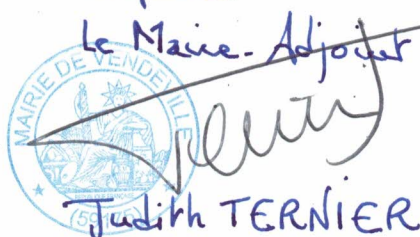 Le Maire-Adjoint
MAIRIE DE VENDEVILLE
Judith TERNIER